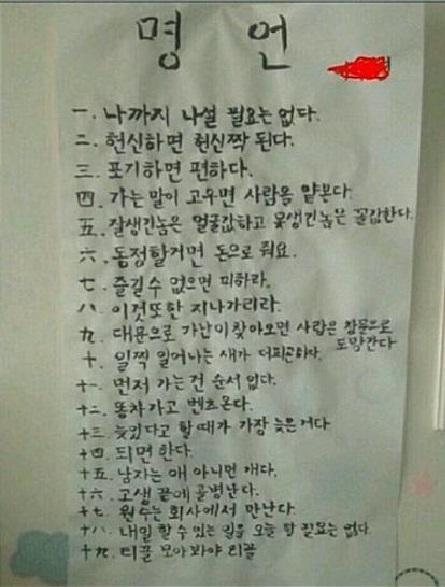 명 언
一. 나까지 나설 필요는 없다.
二. 헌신하면 헌신짝 된다.
三. 포기하면 편하다.
四. 가는 말이 고우면 사람을 얕본다.
五. 잘생긴놈은 얼굴값하고 못생긴놈은 꼴값한다.
六. 동정할거면 돈으로 줘요.
七. 즐길수 없으면 피하라.
八. 이것또한 지나가리라.
九. 대문으로 가난이 찾아오면 사랑은 창문으로
도망간다
十. 일찍 일어나는 새가 더피곤하다.
十一. 먼저 가는건 순서 없다.
十二. 똥차가고 벤츠온다.
十三. 늦었다고 할 때가 가장 늦은거다
十四. 되면 한다.
十五. 남자는 애 아니면 개다.
十六. 고생 끝에 골병난다.
十七. 원수는 회사에서 만난다.
十八. 내일 할 수 있는 일을 오늘 할 필요는 없다.
十九. 티끌 모아봐야 티끌